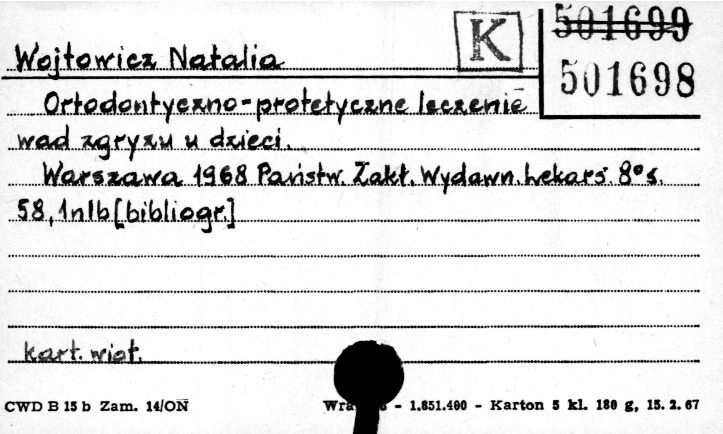 K
501699
501698
Wojtowicz Natalia
Ortodontyczno-protetyczne leczenie
wad zgryzu u dzieci.
Warszawa 1968 Państw. Zakł. Wydawn. Lekars. 8° s.
58, 1 nlb [bibliogr.]
kart. wiot.
CWD B 15 b Zam. 14/ON
- 1.851.400 - Karton 5 kl. 180 g, 15. 2. 67